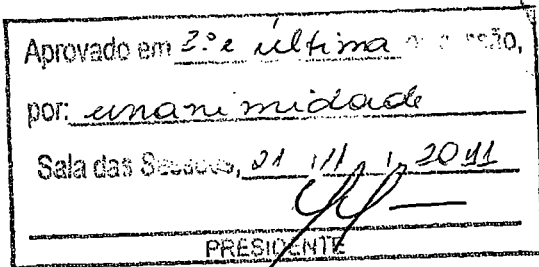 Aprovado em 2.º e última discussão,
por: unanimidade
Sala das Sessões, 21 / 11 / 2011
PRESIDENTE